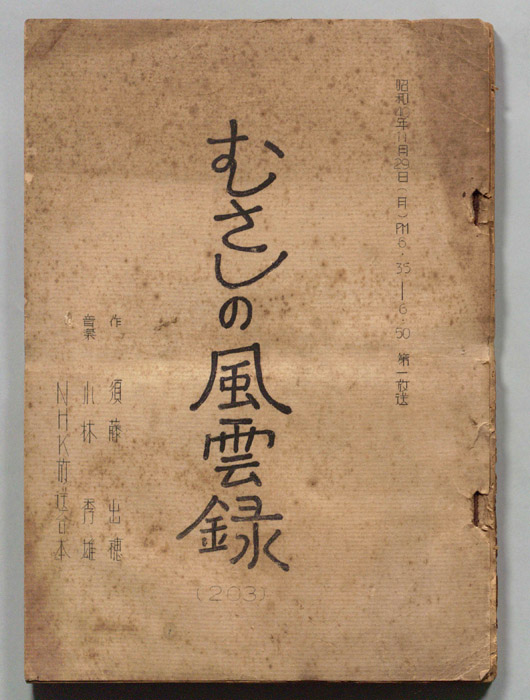 昭和40年11月29日(月)PM6.35―6.50 第一放送
むさしの風雲録
(203)
作 須藤出穂
音楽 小林秀雄
NHK放送台本